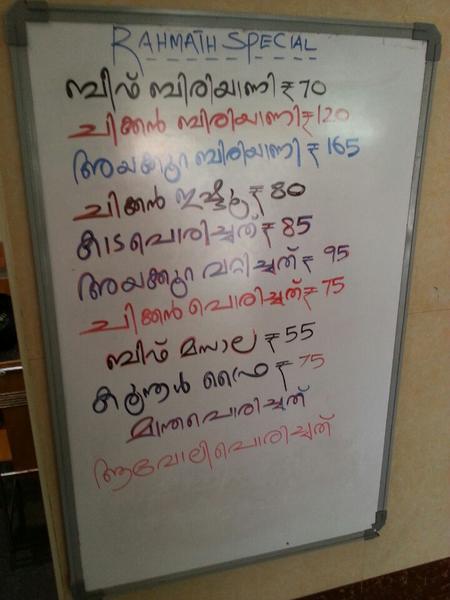 RAHMATH SPECIAL
ബീഫ് ബിരിയാണി ₹ 70
ചിക്കൻ ബിരിയാണി ₹ 120
അയക്കൂറ ബിരിയാണി ₹ 165
ചിക്കൻ ഇഷ്ടൂ ₹ 80
കാടപൊരിച്ചത് ₹ 85
അയക്കൂറ വറ്റിച്ചത് ₹ 95
ചിക്കൻ പൊരിച്ചത് ₹ 75
ബീഫ് മസാല ₹ 55
കൂന്തൾ ഫ്രൈ ₹ 75
മാന്തപൊരിച്ചത്
ആവോലിപൊരിച്ചത്